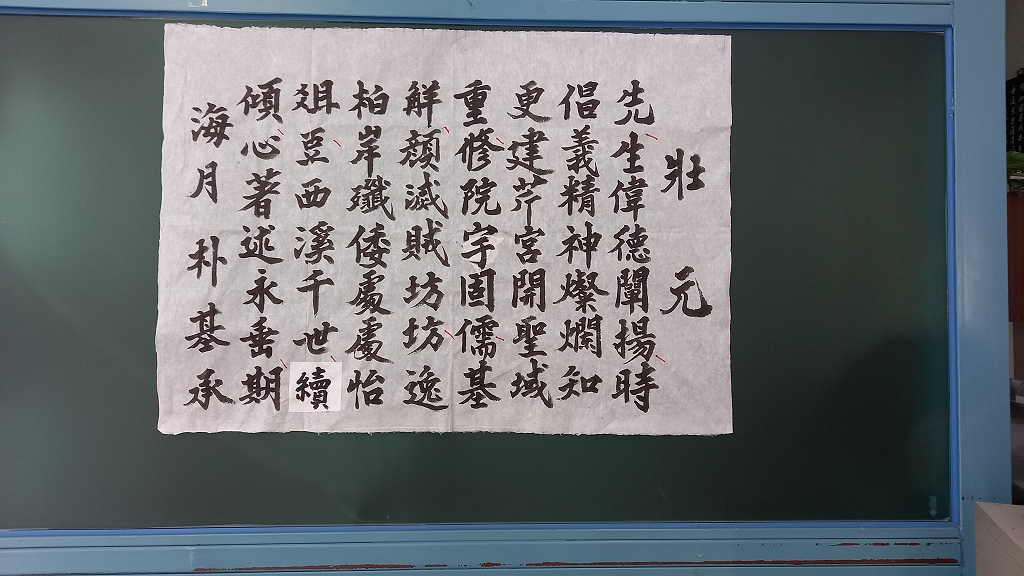 壯元
先生偉德闡揚時
倡義精神燦爛知
更建芹宮開聖域
重修院宇固儒基
觧顔滅賊坊坊逸
柏岸殲倭處處怡
爼豆西溪千世續
傾心著述永垂期
海月 朴基承